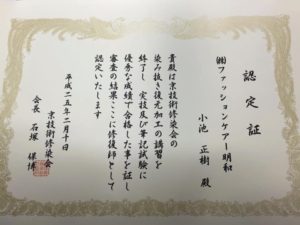 認定証
㈱ファッションケアー明和
小池 正樹 殿
貴殿は京技術修染会の
染み抜き復元加工の講習を
終了し実技及び筆記試験に
優秀な成績で合格した事を証し
審査の結果ここに修復師として
認定いたします
平成二五年二月十日
京技術修染会
会長 石塚 保博